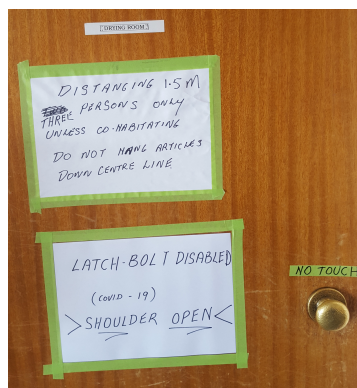 [DRYING ROOM]
DISTANGING 1.5M
THREE PERSONS ONLY
UNLESS CO-HABITATING
DO NOT HANG ARTICLES
DOWN CENTRE LINE
LATCH-BOLT DISABLED
(COVID-19)
>SHOULDER OPEN<
NO TOUCH